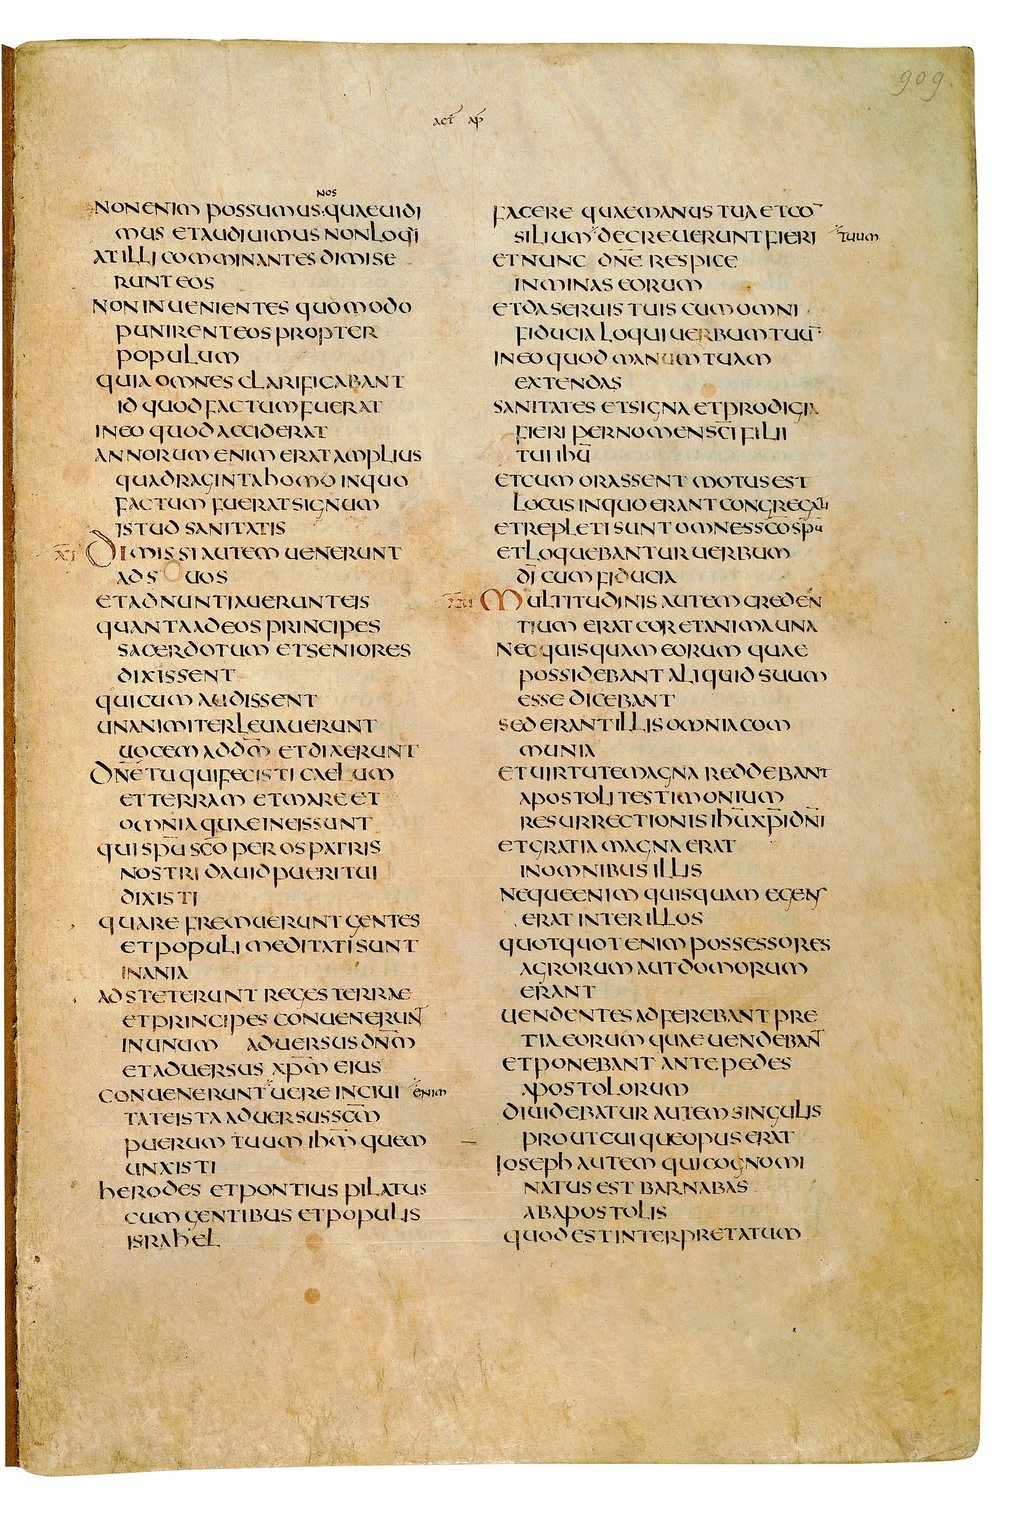 909
act ap
nos
non enim possumus quae uidi
mus et audiuimus non loqi
at illi comminantes dimise
runt eos
non inuenientes quomodo
punirent eos propter
populum
quia omnes clarificabant
id quod factum fuerat
in eo quod acciderat
annorum enim erat amplius
quadraginta homo in quo
factum fuerat signum
istud sanitatis
XI Dimissi autem uenerunt
ad suos
et adnuntiauerunt eis
quanta ad eos principes
sacerdotum et seniores
dixissent
qui cum audissent
unanimiter leuauerunt
uocem ad dm̄ et dixerunt
Dn̄e tu qui fecisti caelum
et terram et mare et
omnia quae in eis sunt
qui spū scō per os patris
nostri dauid pueri tui
dixisti
quare fremuerunt gentes
et populi meditati sunt
inania
adsteterunt reges terrae
et principes conuenerun̄
in unum aduersus dnm̄
et aduersus xpm̄ eius
conuenerunt uere in ciui enim
tate ista aduersus scm̄
puerum tuum ihm̄ quem
unxisti
herodes et pontius pilatus
cum gentibus et populis
israhel
facere quae manus tua et co¯
silium decreuerunt fieri tuum
et nunc dn̄e respice
in minas eorum
et da seruis tuis cum omni
fiducia loqui uerbum tuū
in eo quod manum tuam
extendas
sanitates et signa et prodigia
fieri per nomen sc̄i filii
tui ihū
et cum orassent motus est
locus in quo erant congregati
et repleti sunt omnes scō spū
et loquebantur uerbum
dī cum fiducia
XII Multitudinis autem creden
tium erat cor et anima una
nec quisquam eorum quae
possidebant aliquid suum
esse dicebant
sed erant illis omnia com
munia
et uirtute magna reddebant
apostoli testimonium
resurrectionis ihū xp̄i dn̄i
et gratia magna erat
in omnibus illis
neque enim quisquam egens
erat inter illos
quotquot enim possessores
agrorum aut domorum
erant
uendentes adferebant pre
tia eorum quae uendeban̄
et ponebant ante pedes
apostolorum
diuidebatur autem singulis
prout cuique opus erat
Ioseph autem qui cognomi
natus est barnabas
ab apostolis
quod est interpretatum